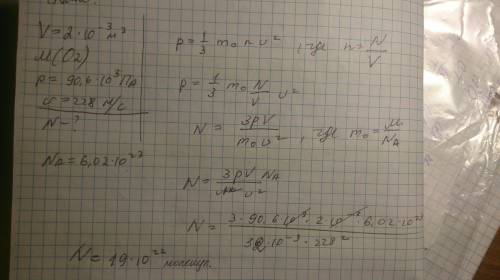 V = 2 · 10⁻³ м³
M(O₂)
p = 90,6 · 10³ Па
v = 228 м/с
N - ?
N_A = 6,02 · 10²³
p = 1/3 m₀ n v² , где n = N/V
p = 1/3 m₀ N/V v²
N = 3pV / m₀ v² , где m₀ = M/N_A
N = 3pV / M v² N_A
N = 3 · 90,6 · 10³ · 2 · 10⁻³ · 6,02 · 10²³ / 32 · 10⁻³ · 228²
N = 19 · 10²² молекул.